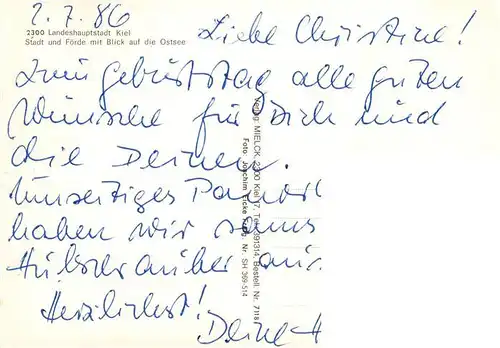 2.7.86
2300 Landeshauptstadt Kiel
Stadt und Förde mit Blick auf die Ostsee
Liebe Christine!
Zum Geburtstag alle guten
Wünsche für Dich und
die Deinen.
haben wir
Herzlichst!
Deine H
Verlag: MIELCK, 2300 Kiel 17, Tel. 391314, Bestell. Nr. 7118
Foto: Joachim Nr. SH 369-514